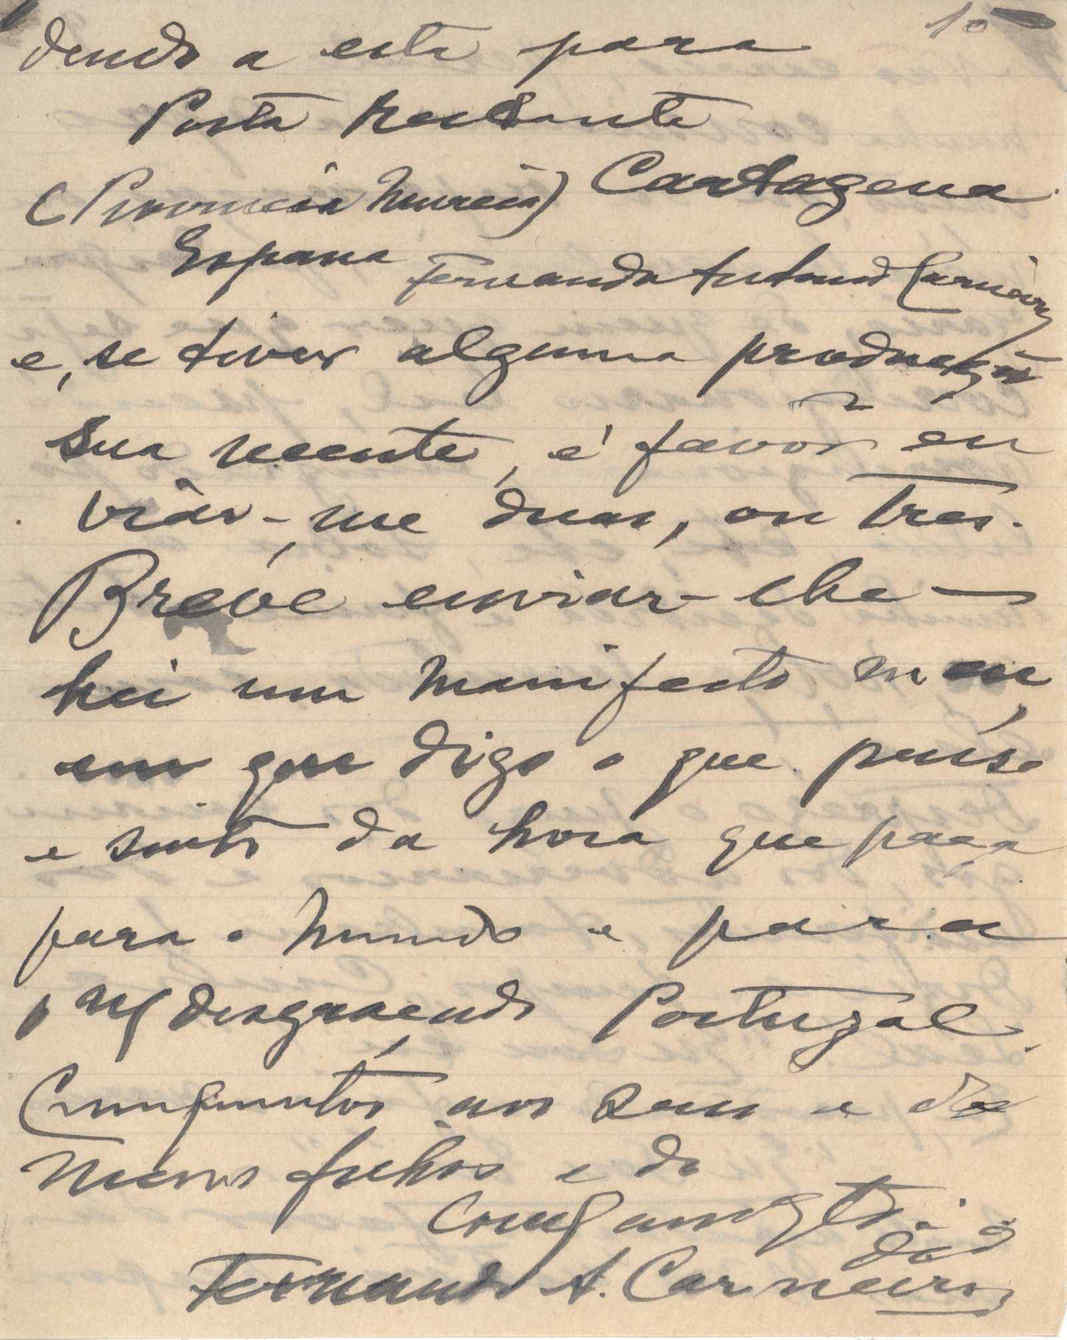 10
dendo a esta para
Posta Restante
(Provincia Murcia) Cartagena
Espana Fernando Antonio Carneiro
e, se tiver alguma producção
sua recente, é favor en
viár-me duas, ou tres.
Breve enviar-lhe-
hei um manifesto meu,
em que digo o que penso
e sinto da hora que passa
para o mundo e para
o desgraçado Portugal.
Cumprimentos aos seus e de
meus filhos e do
Comp am gto.
Fernando A. Carneiro